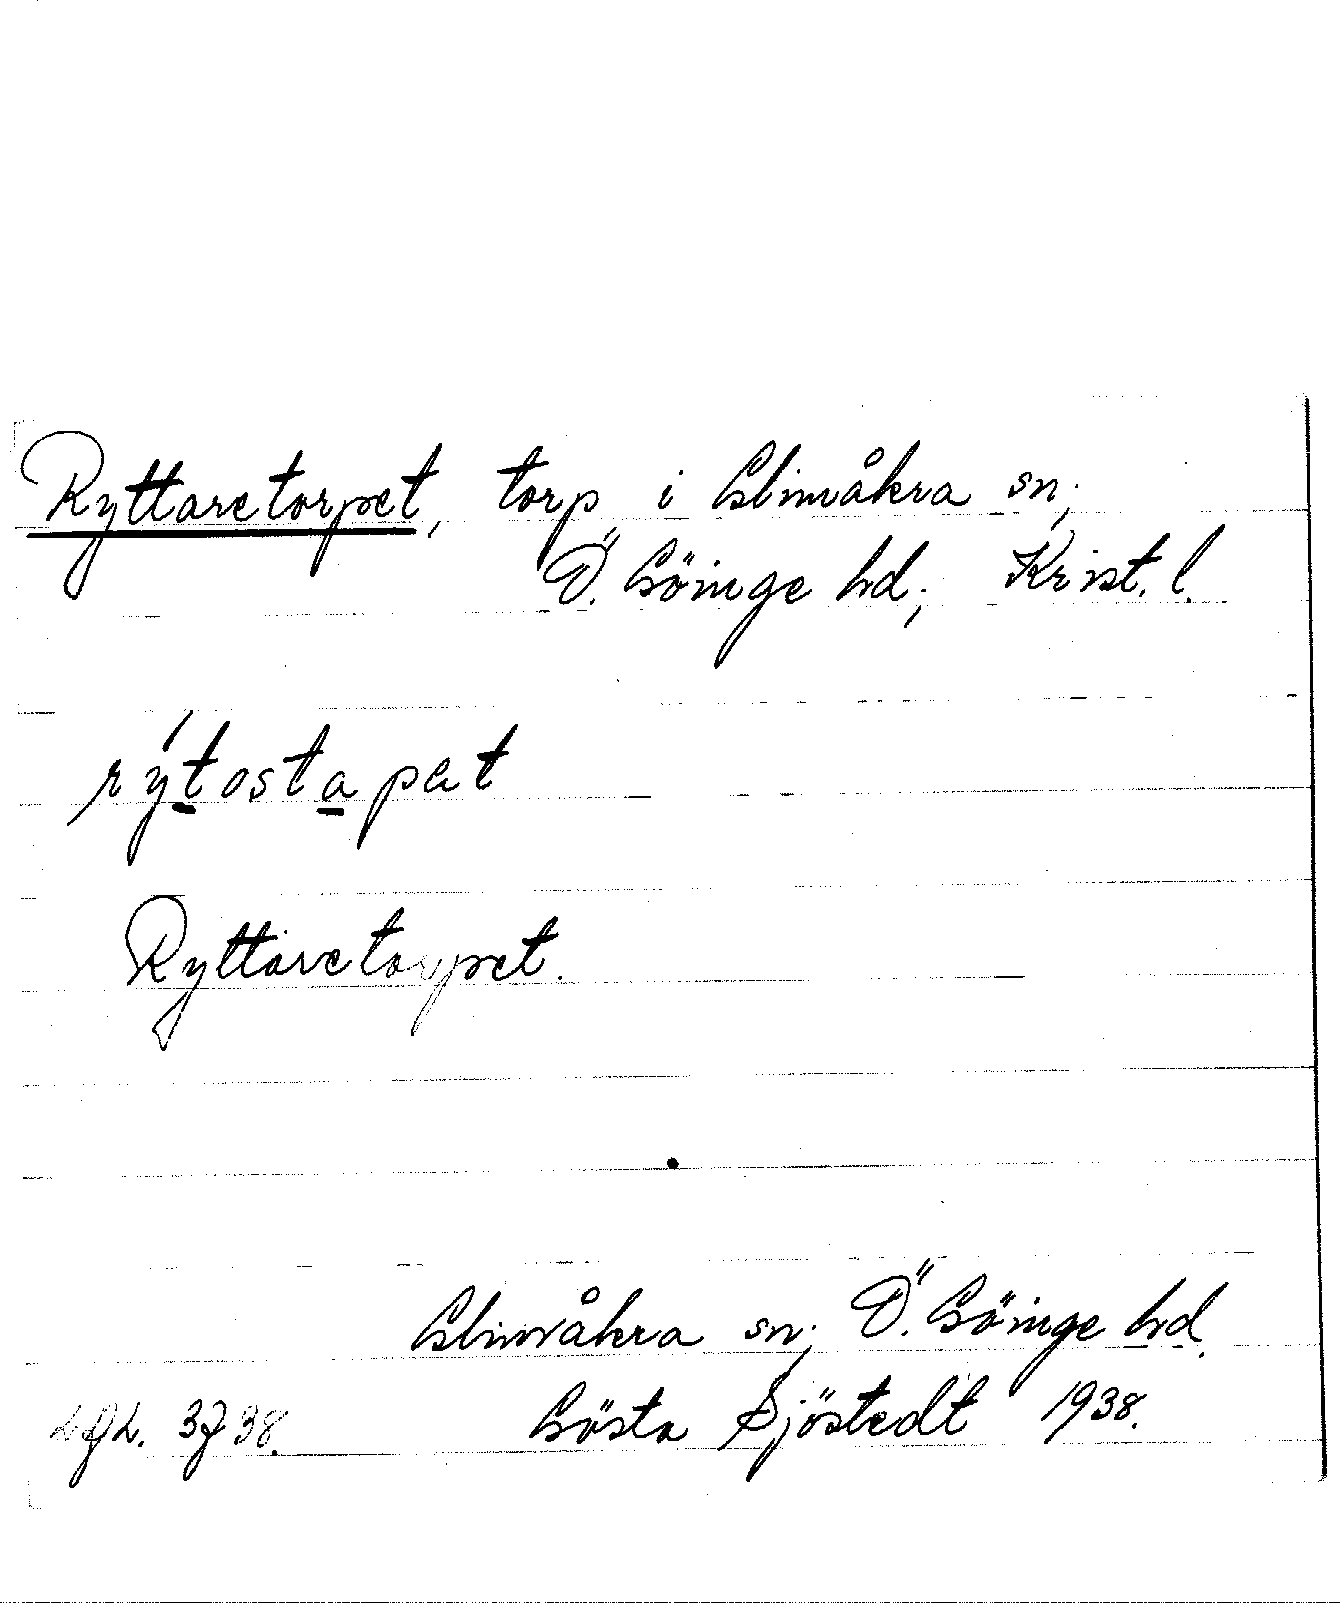 Ryttaretorpet, torp i Glimåkra sn,
Ö. Göinge hd, Krist. l.
rýtostapet
Ryttaretorpet.
Glimåkra sn, Ö. Göinge hd.
Gösta Sjöstedt 1938.